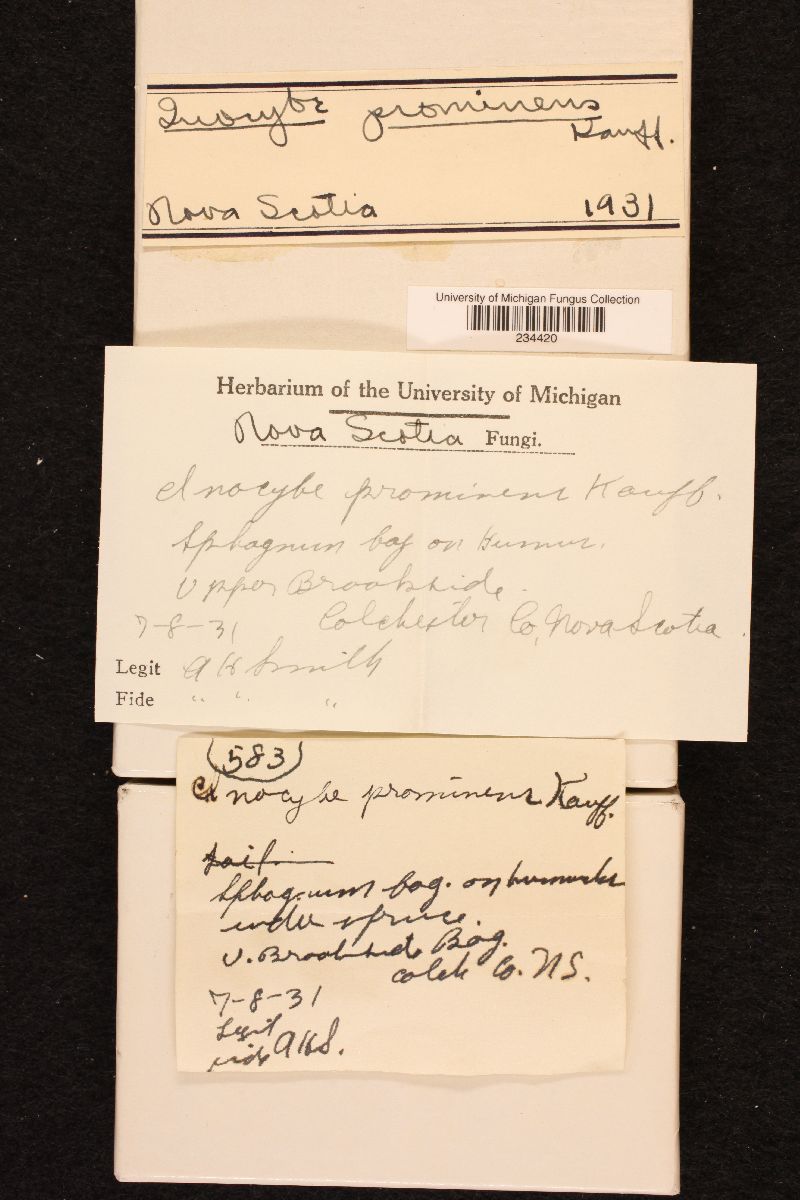 Inocybe prominens
Kauff.
Nova Scotia 1931
University of Michigan Fungus Collection
234420
Herbarium of the University of Michigan
Nova Scotia Fungi.
Inocybe prominens Kauff.
Sphagnum bog on humus.
Upper Brookside.
7-8-31 Colchester Co, Nova Scotia.
Legit A H Smith
Fide " " "
(583)
Inocybe prominens Kauff.
soil
Sphagnum bog. on
under spruce.
U. Brookside Bog.
Colch Co. N.S.
7-8-31
Legit
A H S.